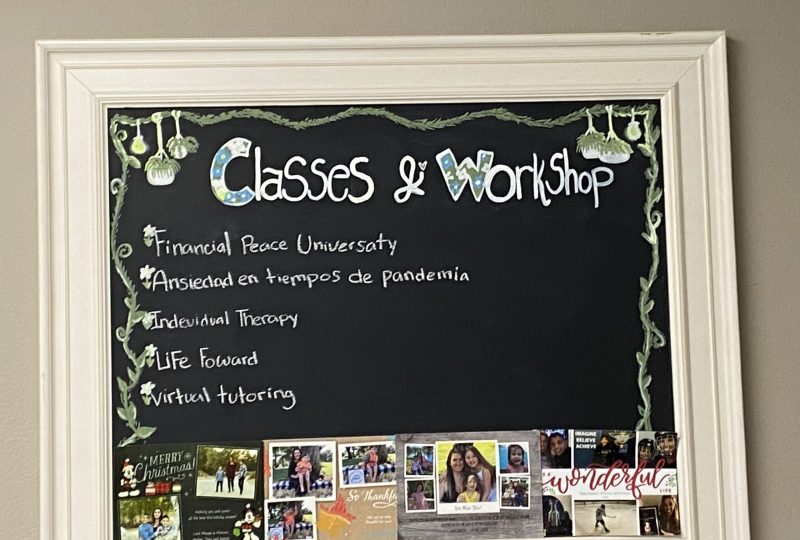 Classes & Workshop
Financial Peace Universaty
Ansiedad en tiempos de pandemia
Indevidual Therapy
Life Foward
virtual tutoring
MERRY
Christmas!
So Thankful
IMAGINE
BELIEVE
ACHIEVE
wonderful
LIFE